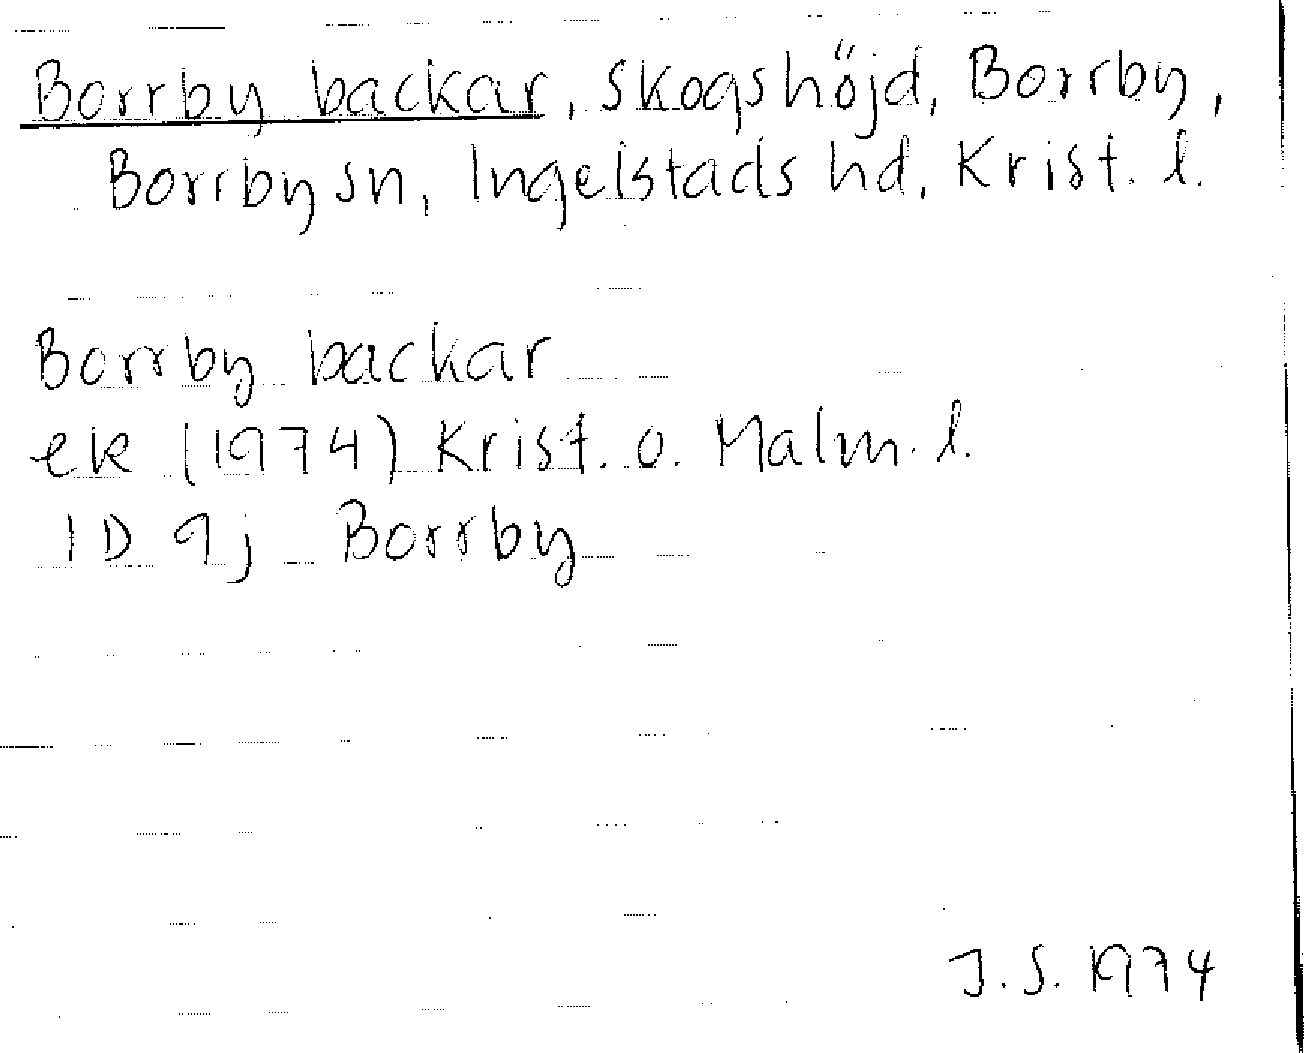 Borrby backar, skogshöjd, Borrby,
Borrby sn, Ingelstads hd, Krist. l.
Borrby backar
ek (1974) Krist. o. Malm. l.
1D 9j Borrby
J.S. 1974